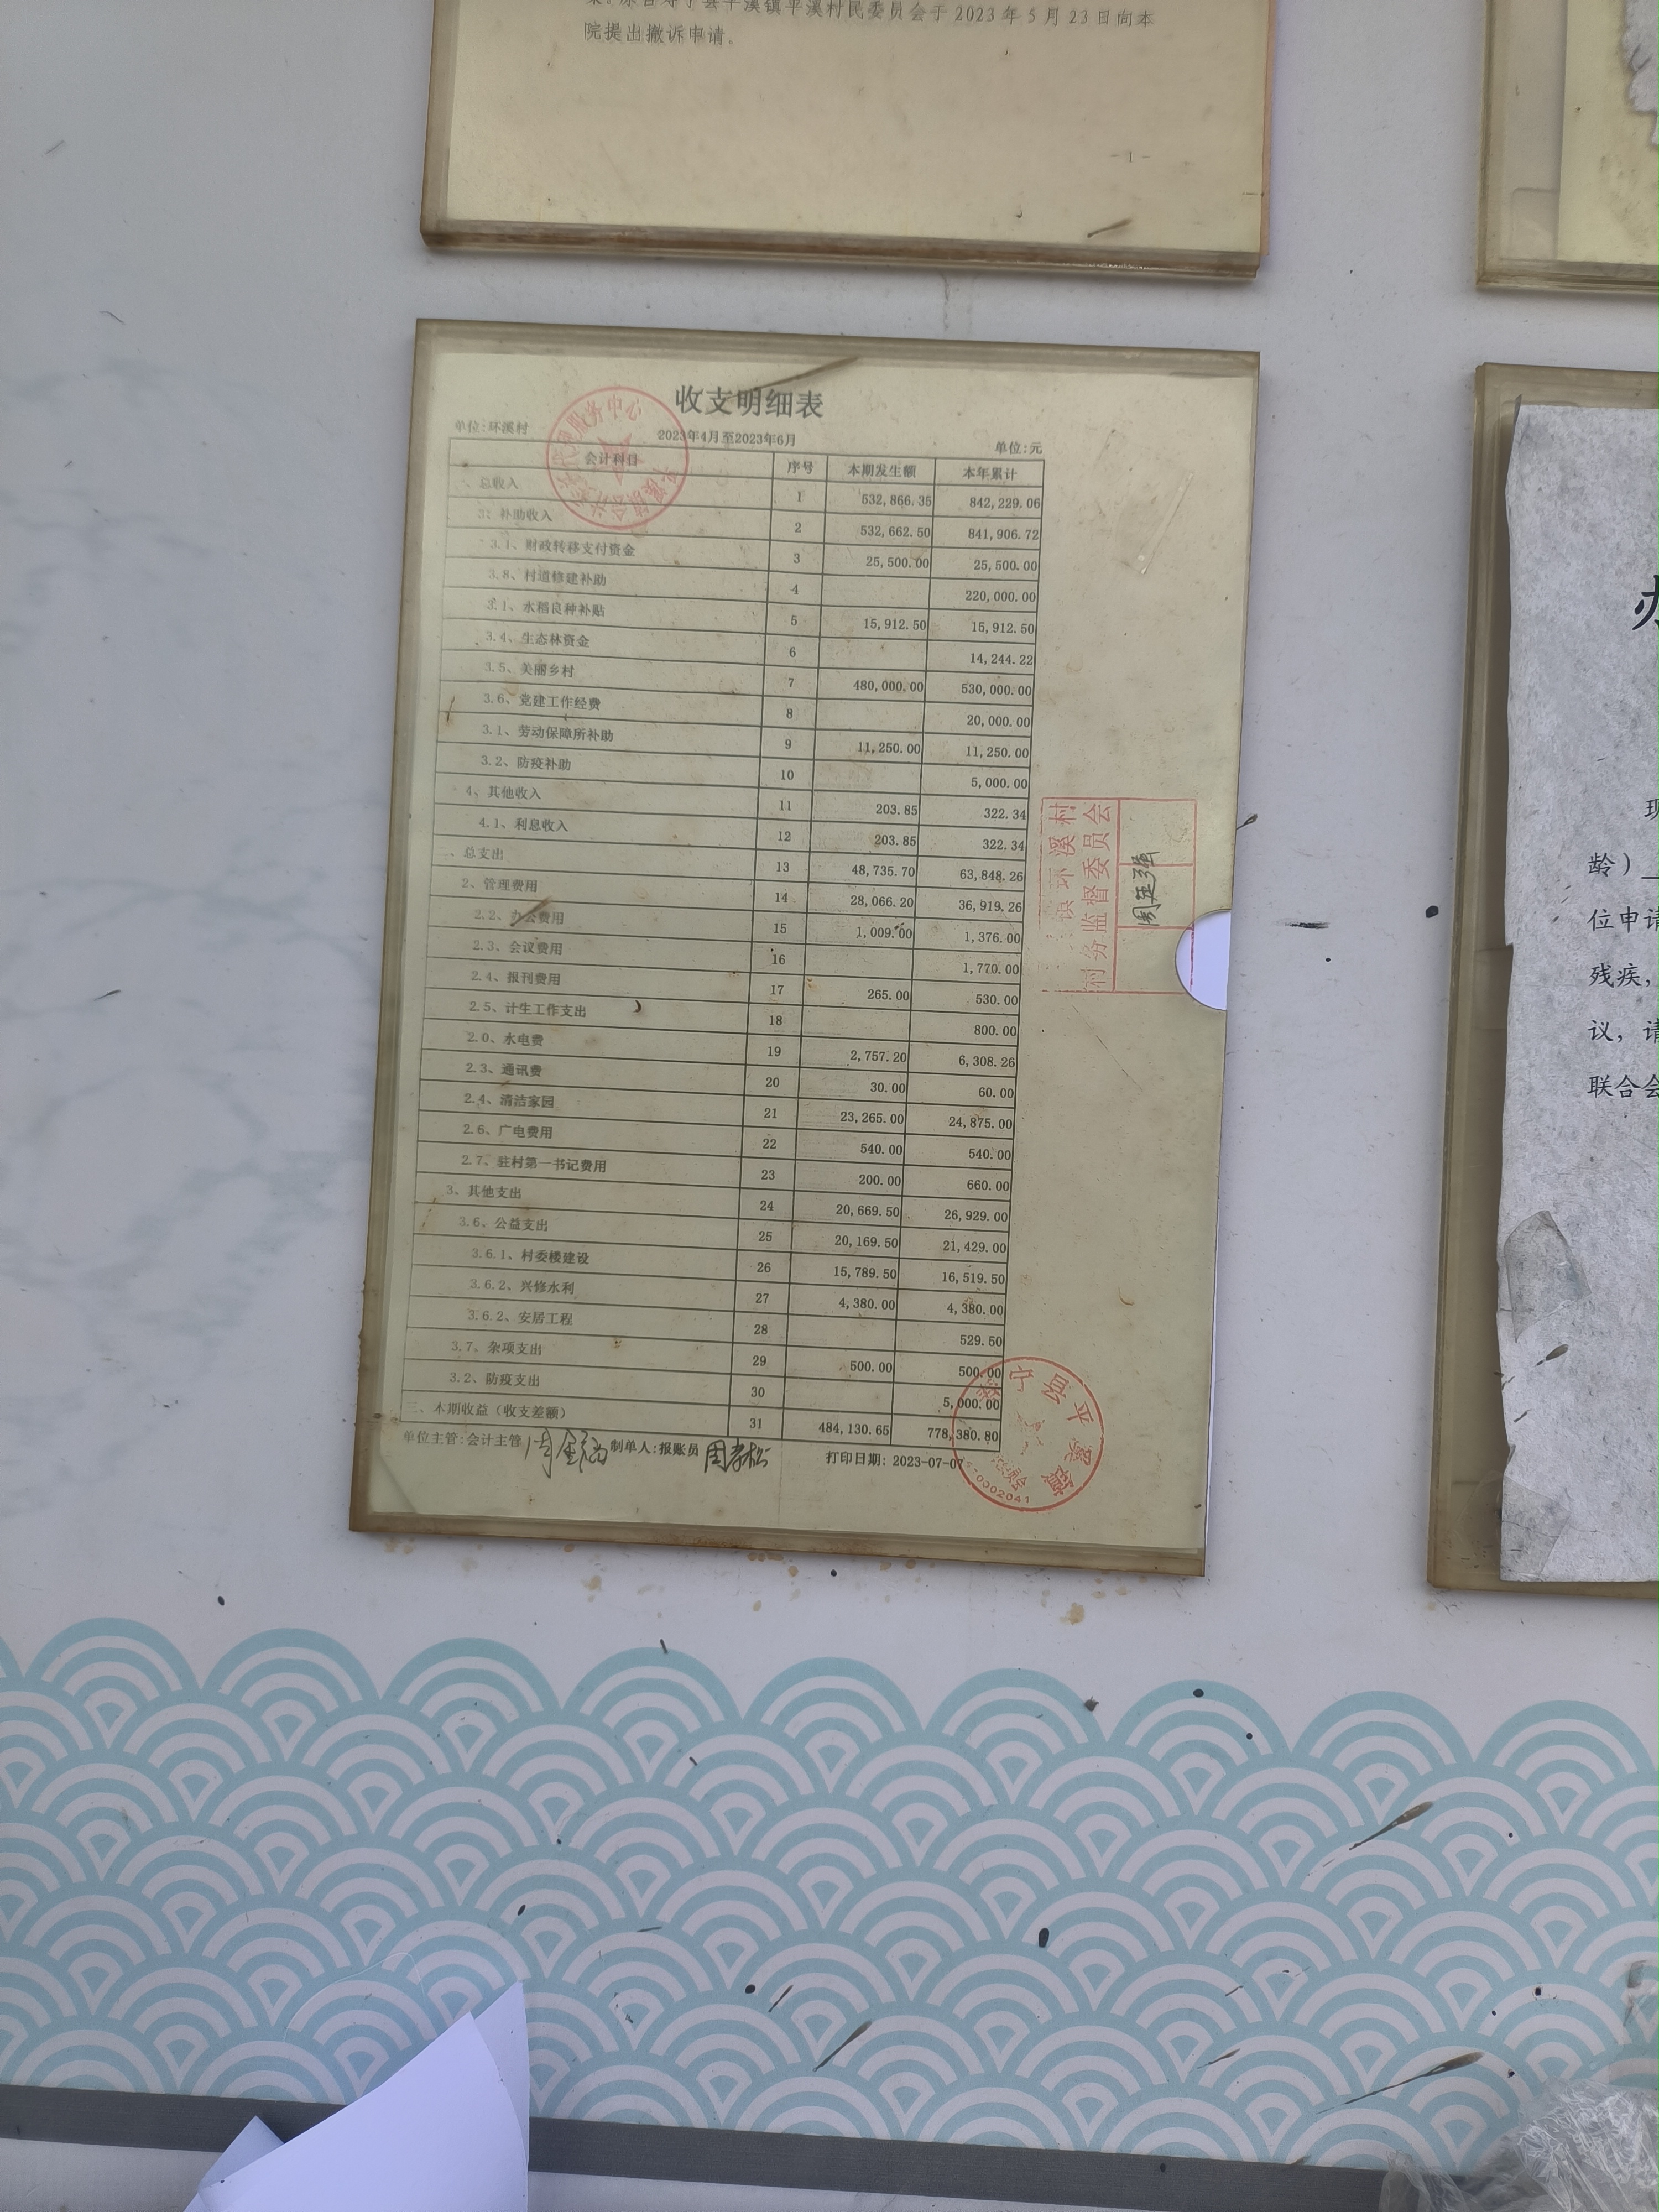 院提出撤诉申请。
- 1 -
收支明细表
单位:环溪村 2023年4月至2023年6月 单位:元
会计科目 序号 本期发生额 本年累计
一、总收入 1 532,866.35 842,229.06
3、补助收入 2 532,662.50 841,906.72
3.1、财政转移支付资金 3 25,500.00 25,500.00
3.8、村道修建补助 4 220,000.00
3.1、水稻良种补贴 5 15,912.50 15,912.50
3.4、生态林资金 6 14,244.22
3.5、美丽乡村 7 480,000.00 530,000.00
3.6、党建工作经费 8 20,000.00
3.1、劳动保障所补助 9 11,250.00 11,250.00
3.2、防疫补助 10 5,000.00
4、其他收入 11 203.85 322.34
4.1、利息收入 12 203.85 322.34
二、总支出 13 48,735.70 63,848.26
2、管理费用 14 28,066.20 36,919.26
2.2、办公费用 15 1,009.00 1,376.00
2.3、会议费用 16 1,770.00
2.4、报刊费用 17 265.00 530.00
2.5、计生工作支出 18 800.00
2.0、水电费 19 2,757.20 6,308.26
2.3、通讯费 20 30.00 60.00
2.4、清洁家园 21 23,265.00 24,875.00
2.6、广电费用 22 540.00 540.00
2.7、驻村第一书记费用 23 200.00 660.00
3、其他支出 24 20,669.50 26,929.00
3.6、公益支出 25 20,169.50 21,429.00
3.6.1、村委楼建设 26 15,789.50 16,519.50
3.6.2、兴修水利 27 4,380.00 4,380.00
3.6.2、安居工程 28 529.50
3.7、杂项支出 29 500.00 500.00
3.2、防疫支出 30 5,000.00
三、本期收益（收支差额） 31 484,130.65 778,380.80
单位主管:会计主管 制单人:报账员 打印日期: 2023-07-07
镇环溪村
村务监督委员会
龄）
位申请
残疾，
议，请
联合会